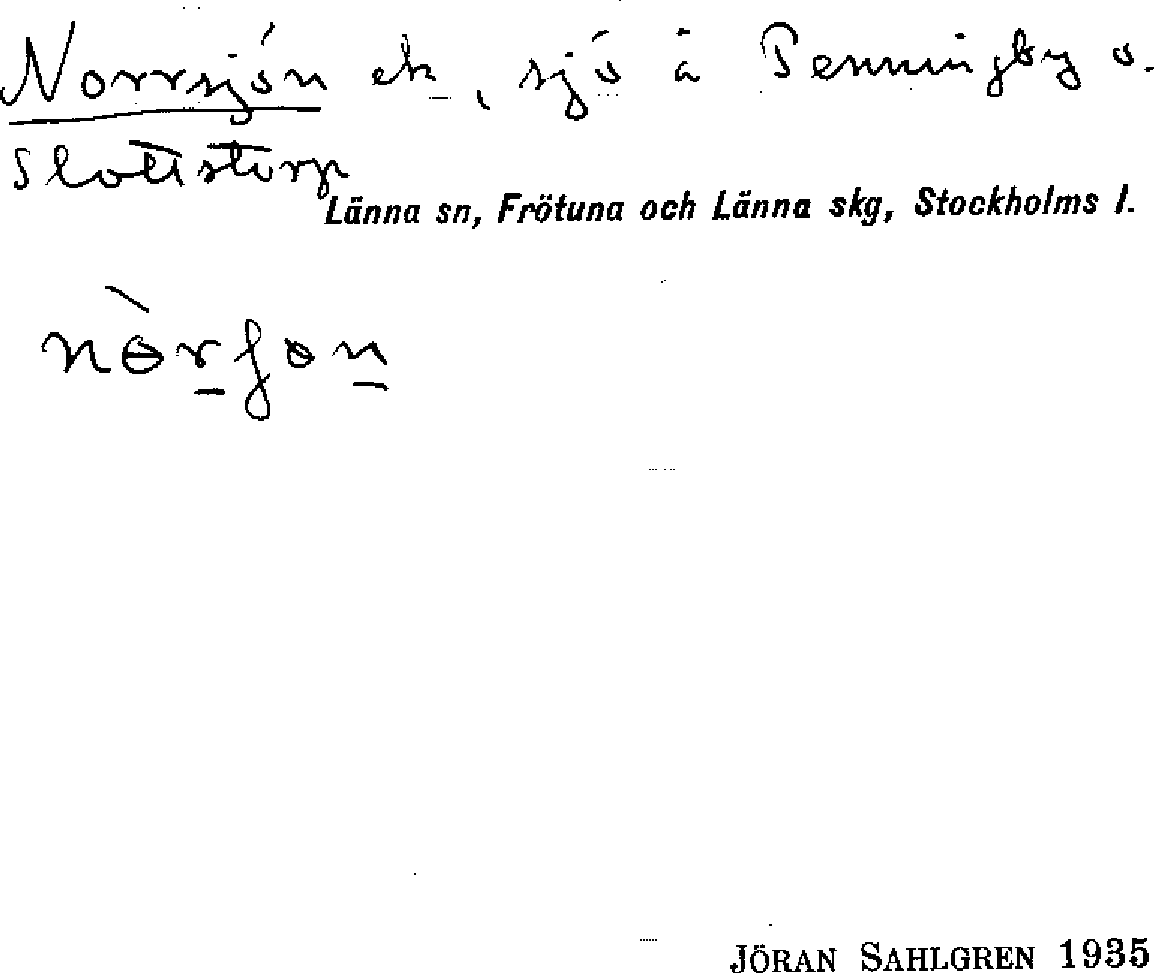 Norrsjön ek, sjö å Penningby o.
Slottstorp
Länna sn, Frötuna och Länna skg, Stockholms l.
JÖRAN SAHLGREN 1935